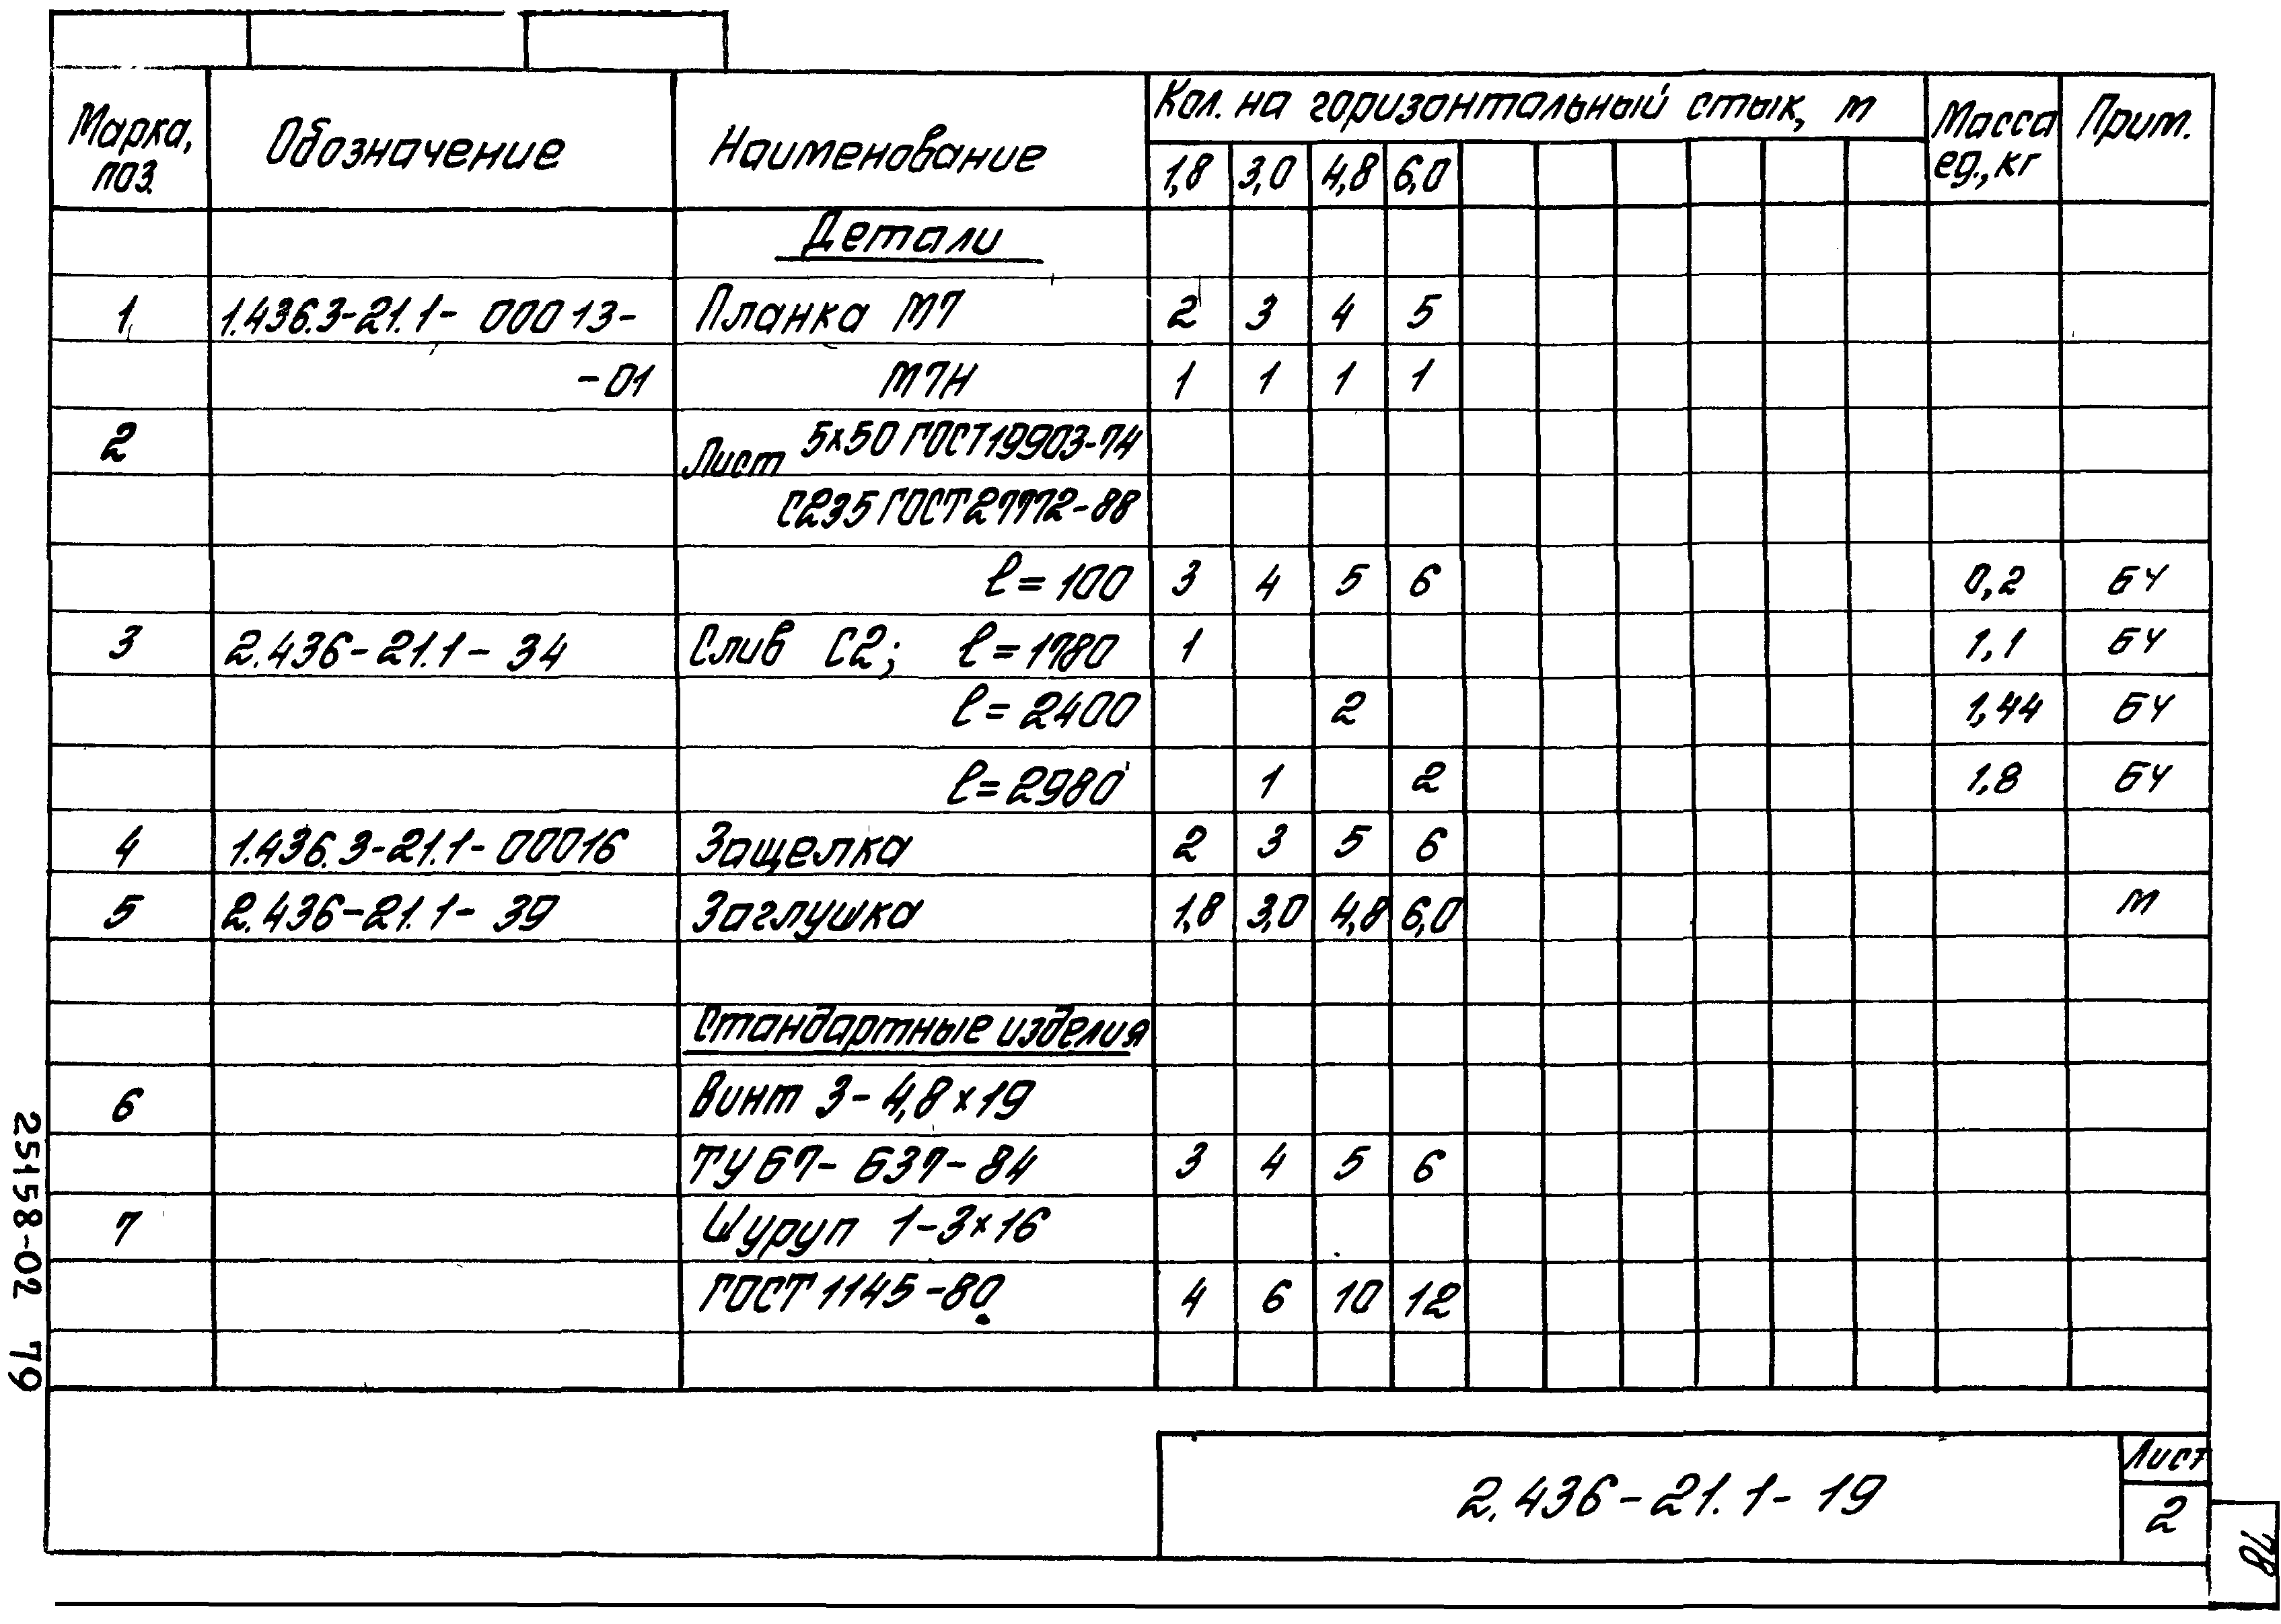 Марка, поз. Обозначение Наименование Кол. на горизонтальный стык, м Масса ед., кг Прим.
1,8 3,0 4,8 6,0
Детали
1 1.436.3-21.1-00013- Планка М7 2 3 4 5
-01 М7Н 1 1 1 1
2 Лист 5х50 ГОСТ19903-74
С235 ГОСТ27772-88
ℓ=100 3 4 5 6 0,2 БЧ
3 2.436-21.1-34 Слив С2; ℓ=1780 1 1,1 БЧ
ℓ=2400 2 1,44 БЧ
ℓ=2980 1 2 1,8 БЧ
4 1.436.3-21.1-00016 Защелка 2 3 5 6
5 2.436-21.1-39 Заглушка 1,8 3,0 4,8 6,0 м
Стандартные изделия
6 Винт 3-4,8х19
ТУ67-637-84 3 4 5 6
7 Шуруп 1-3х16
ГОСТ 1145-80. 4 6 10 12
2.436-21.1-19
Лист
2
25158-02 79
78